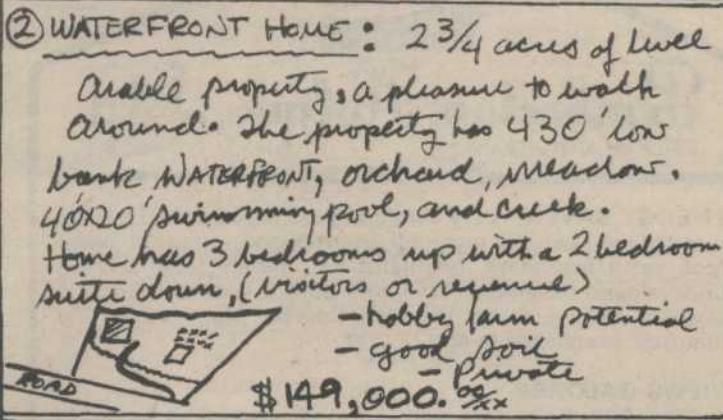 ② WATERFRONT HOME: 2 3/4 acres of level
arable property, a pleasure to walk
around. The property has 430' low
bank WATERFRONT, orchard, meadow.
40'x20' swimming pool, and creek.
Home has 3 bedrooms up with a 2 bedroom
suite down, (visitors or revenue)
- hobby farm potential
- good soil
- Private
ROAD
$149,000.00/xx